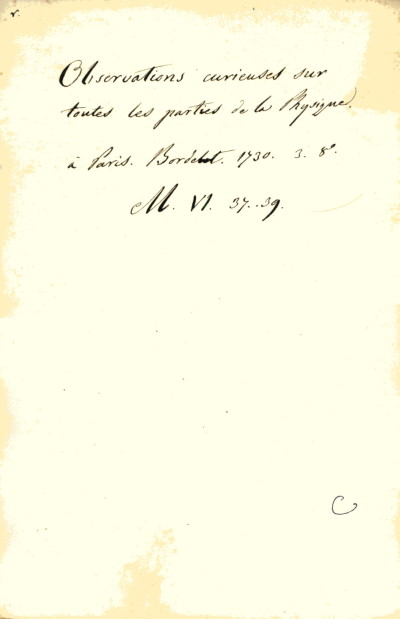 r.
Observations curieuses sur
toutes les parties de la Physique.
à Paris. Bordelet. 1730. 3. 8°.
M. VI. 37..39.
C